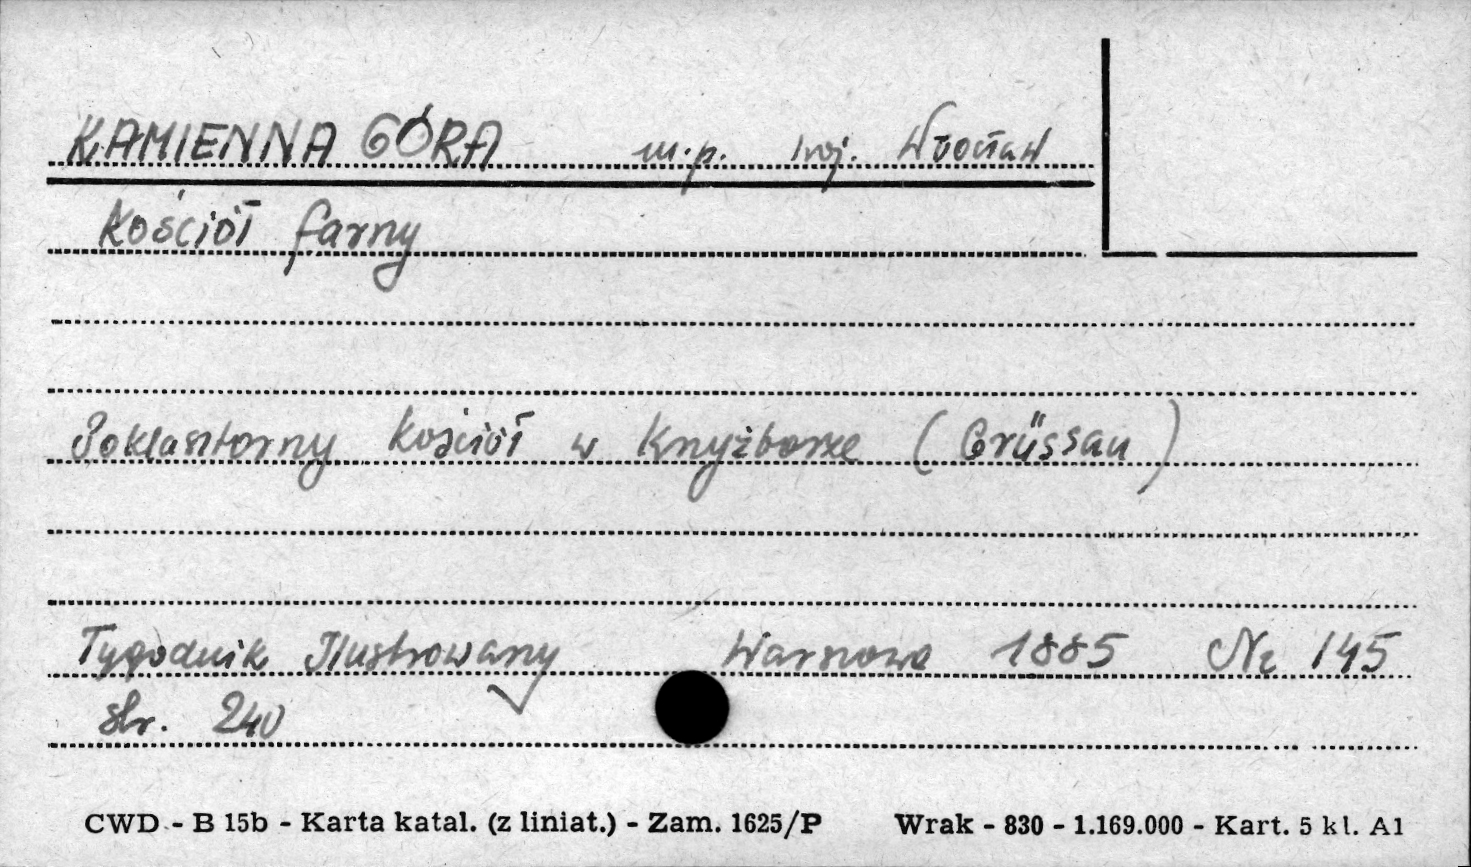 KAMIENNA GÓRA m.p. woj. Wrocław
Kościół farny
Poklasztorny kościół w Knyżborze (Grüssau)
Tygodnik Ilustrowany Warszawa 1885 Nr 145
str. 240
CWD - B 15b - Karta katal. (z liniat.) - Zam. 1625/P Wrak - 830 - 1.169.000 - Kart. 5 kl. A1